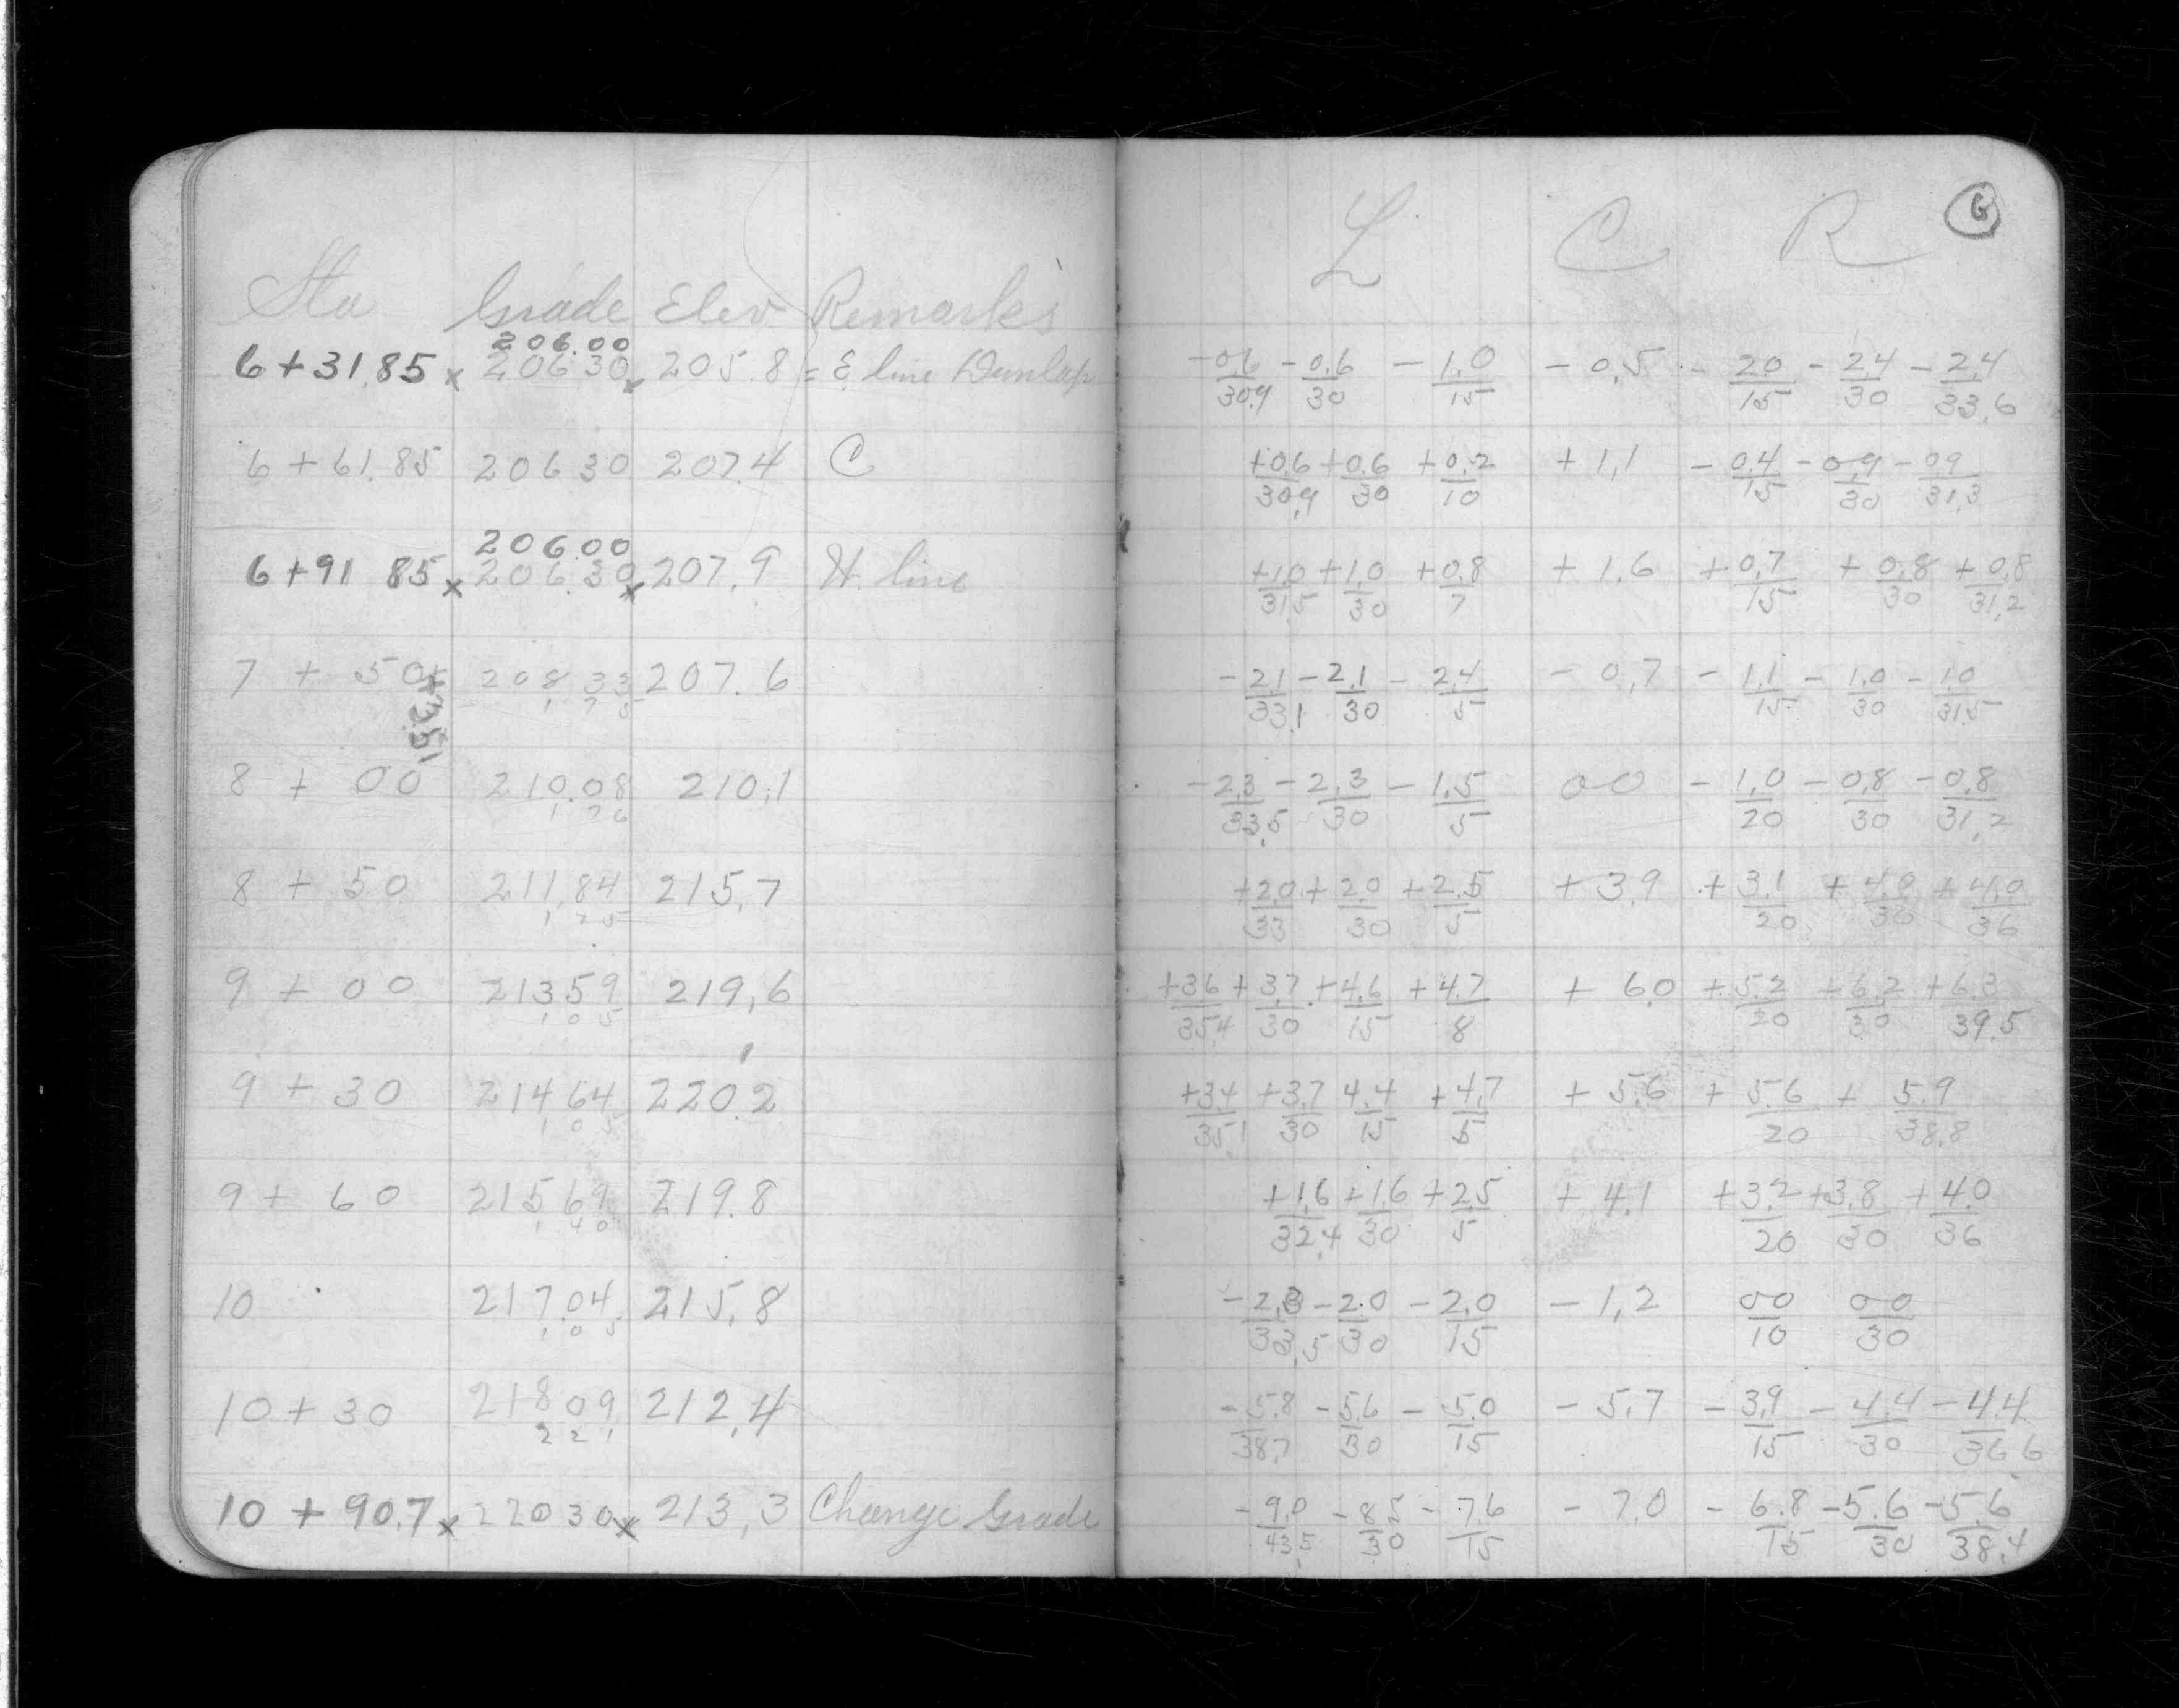 L C R 6
Sta Grade Elev Remarks
206.00
6+31.85 x 206.30 x 205.8 = E line Dunlap -0.6/30.9 -0.6/30 -1.0/15 -0.5 -2.0/15 -2.4/30 -2.4/33.6
6+61.85 206.30 207.4 C +0.6/30.9 +0.6/30 +0.2/10 +1.1 -0.4/15 -0.9/30 -0.9/31.3
206.00
6+91 85 x 206.30 x 207.9 W. line +1.0/31.5 +1.0/30 +0.8/7 +1.6 +0.7/15 +0.8/30 +0.8/31.2
7 + 50 208 33 207.6 -2.1/33.1 -2.1/30 -2.4/5 -0.7 -1.1/15 -1.0/30 -1.0/31.5
1 7 5
8 + 00 210.08 210.1 -2.3/33.5 -2.3/30 -1.5/5 00 -1.0/20 -0.8/30 -0.8/31.2
1 7 6
8 + 50 211.84 215.7 +2.0/33 +2.0/30 +2.5/5 +3.9 +3.1/20 +4.0/30 +4.0/36
1 75
9 + 00 213 59 219.6 +3.6/35.4 +3.7/30 +4.6/15 +4.7/8 +6.0 +5.2/20 +6.2/30 +6.3/39.5
1 0 5
9 + 30 214 64 220.2 +3.4/35.1 +3.7/30 4.4/15 +4.7/5 +5.6 +5.6/20 +5.9/38.8
1 0 5
9 + 60 215 69 219.8 +1.6/32.4 +1.6/30 +2.5/5 +4.1 +3.2/20 +3.8/30 +4.0/36
1 40
10 217.04 215.8 -2.3/33.5 -2.0/30 -2.0/15 -1.2 00/10 00/30
1 0 5
10 + 30 218 09 212.4 -5.8/38.7 -5.6/30 -5.0/15 -5.7 -3.9/15 -4.4/30 -4.4/36 6
2 2 1
10 + 90.7 x 220 30 x 213.3 Change Grade -9.0/43.5 -8.5/30 -7.6/15 -7.0 -6.8/15 -5.6/30 -5.6/38.4